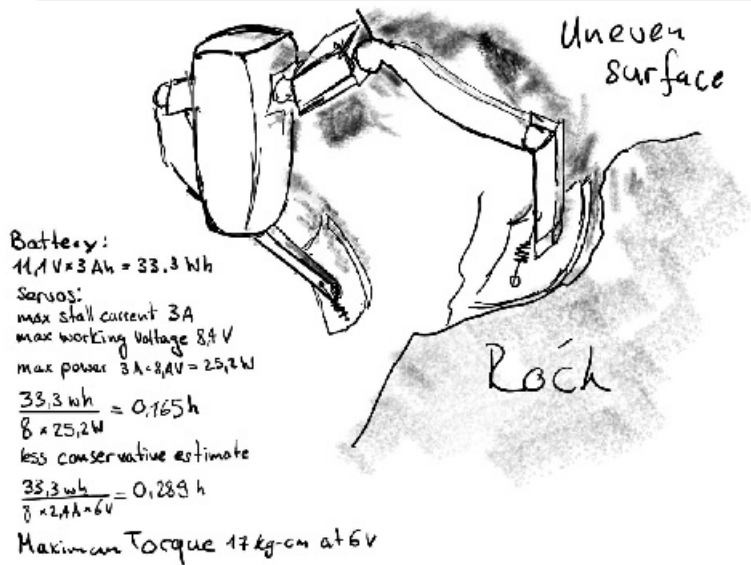 Uneven
surface
Battery:
11,1 V × 3 Ah = 33.3 Wh
Servos:
max stall current 3A
max working voltage 8,4 V
max power 3A·8,4V = 25,2W
33,3 wh / 8 × 25,2W = 0,165h
less conservative estimate
33,3 wh / 8 × 2,4A × 6V = 0,289 h
Maximum Torque 17 kg-cm at 6V
Rock